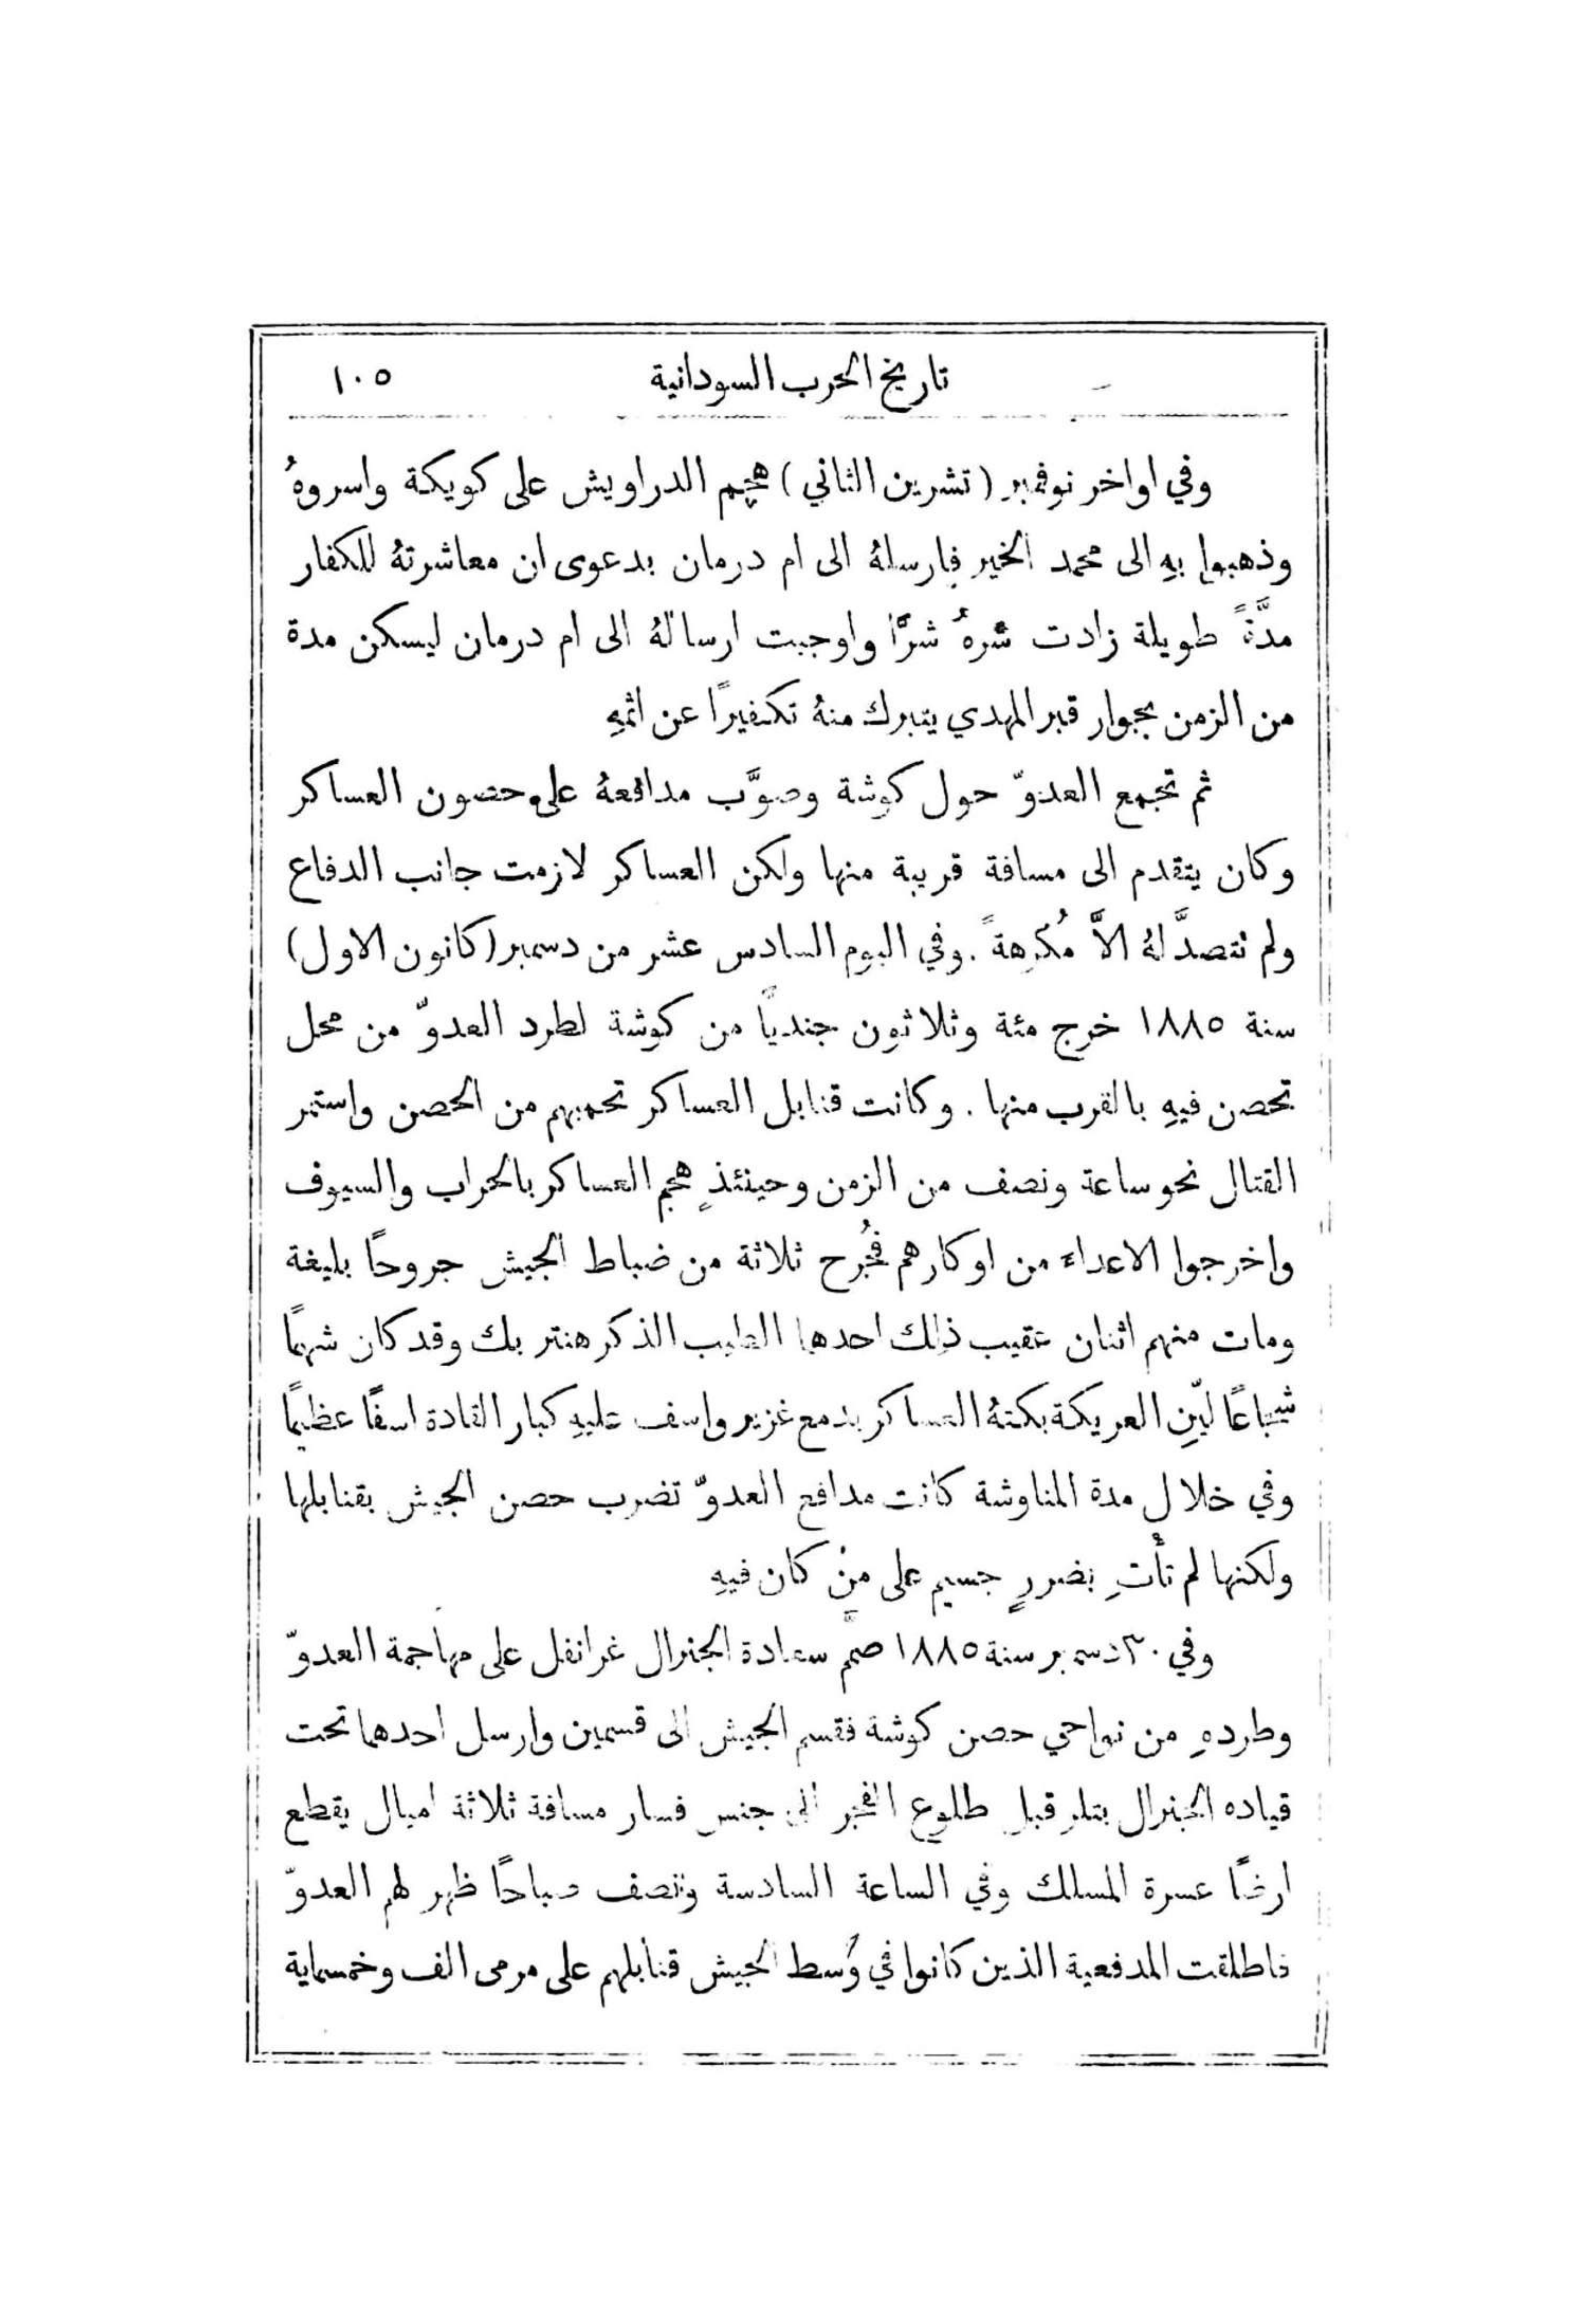 تاريخ الحرب السودانية ١٠٥
وفي اواخر نوفمبر (تشرين الثاني) هجم الدراويش على كويكة واسروهُ
وذهبوا بهِ الى محمد الخير فارسلهُ الى ام درمان بدعوى ان معاشرتهُ للكفار
مدَّةً طويلة زادت شرهُ شرًّا واوجبت ارسالهُ الى ام درمان ليسكن مدة
من الزمن بجوار قبر المهدي يتبرك منهُ تكفيرًا عن اثمهِ
ثم تجمع العدوّ حول كوشة وصوَّب مدافعهُ على حصون العساكر
وكان يتقدم الى مسافة قريبة منها ولكن العساكر لازمت جانب الدفاع
ولم تتصدَّ لهُ الاَّ مُكرهةً . وفي اليوم السادس عشر من دسمبر (كانون الاول)
سنة ١٨٨٥ خرج مئة وثلاثون جنديًّا من كوشة لطرد العدوّ من محل
تحصن فيهِ بالقرب منها . وكانت قنابل العساكر تحميهم من الحصن واستمر
القتال نحو ساعة ونصف من الزمن وحينئذٍ هجم العساكر بالحراب والسيوف
واخرجوا الاعداء من اوكارهم فجُرح ثلاثة من ضباط الجيش جروحًا بليغة
ومات منهم اثنان عقيب ذلك احدها الطيب الذكر هنتر بك وقد كان شهمًا
شجاعًا ليّنِ العريكة بكتهُ العساكر بدمع غزير واسف عليهِ كبار القادة اسفًا عظيمًا
وفي خلال مدة المناوشة كانت مدافع العدوّ تضرب حصن الجيش بقنابلها
ولكنها لم تأتِ بضررٍ جسيم على منْ كان فيهِ
وفي ٣٠ دسمبر سنة ١٨٨٥ صمَّم سعادة الجنرال غرانفل على مهاجمة العدوّ
وطردهِ من نواحي حصن كوشة فقسم الجيش الى قسمين وارسل احدهما تحت
قياده الجنرال بتلر قبل طلوع الفجر الى جنس فسار مسافة ثلاثة اميال يقطع
ارضًا عسرة المسلك وفي الساعة السادسة ونصف صباحًا ظهر لهم العدوّ
فاطلقت المدفعية الذين كانوا في وُسط الجيش قنابلهم على مرمى الف وخمسماية